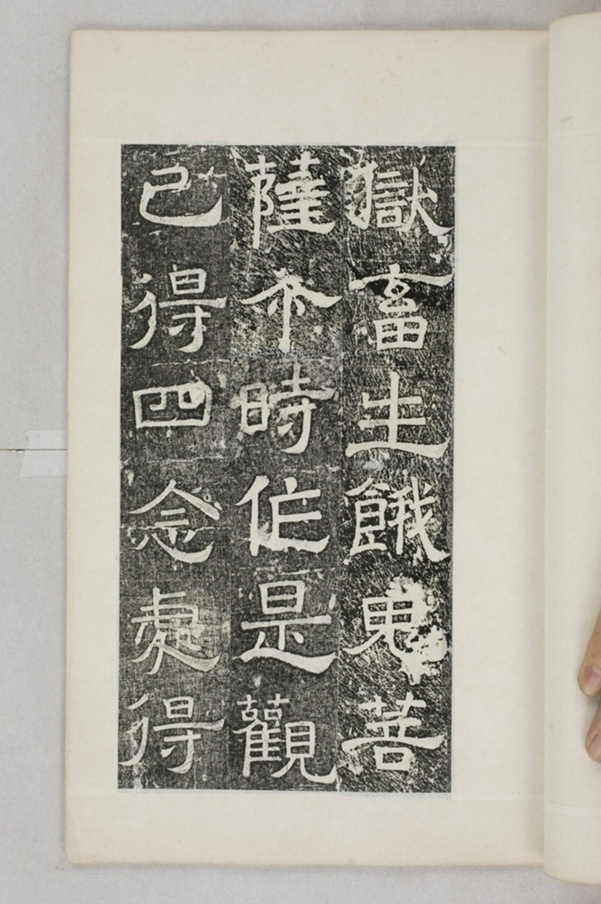 獄畜生餓鬼菩
薩尒時作是觀
已得四念處得